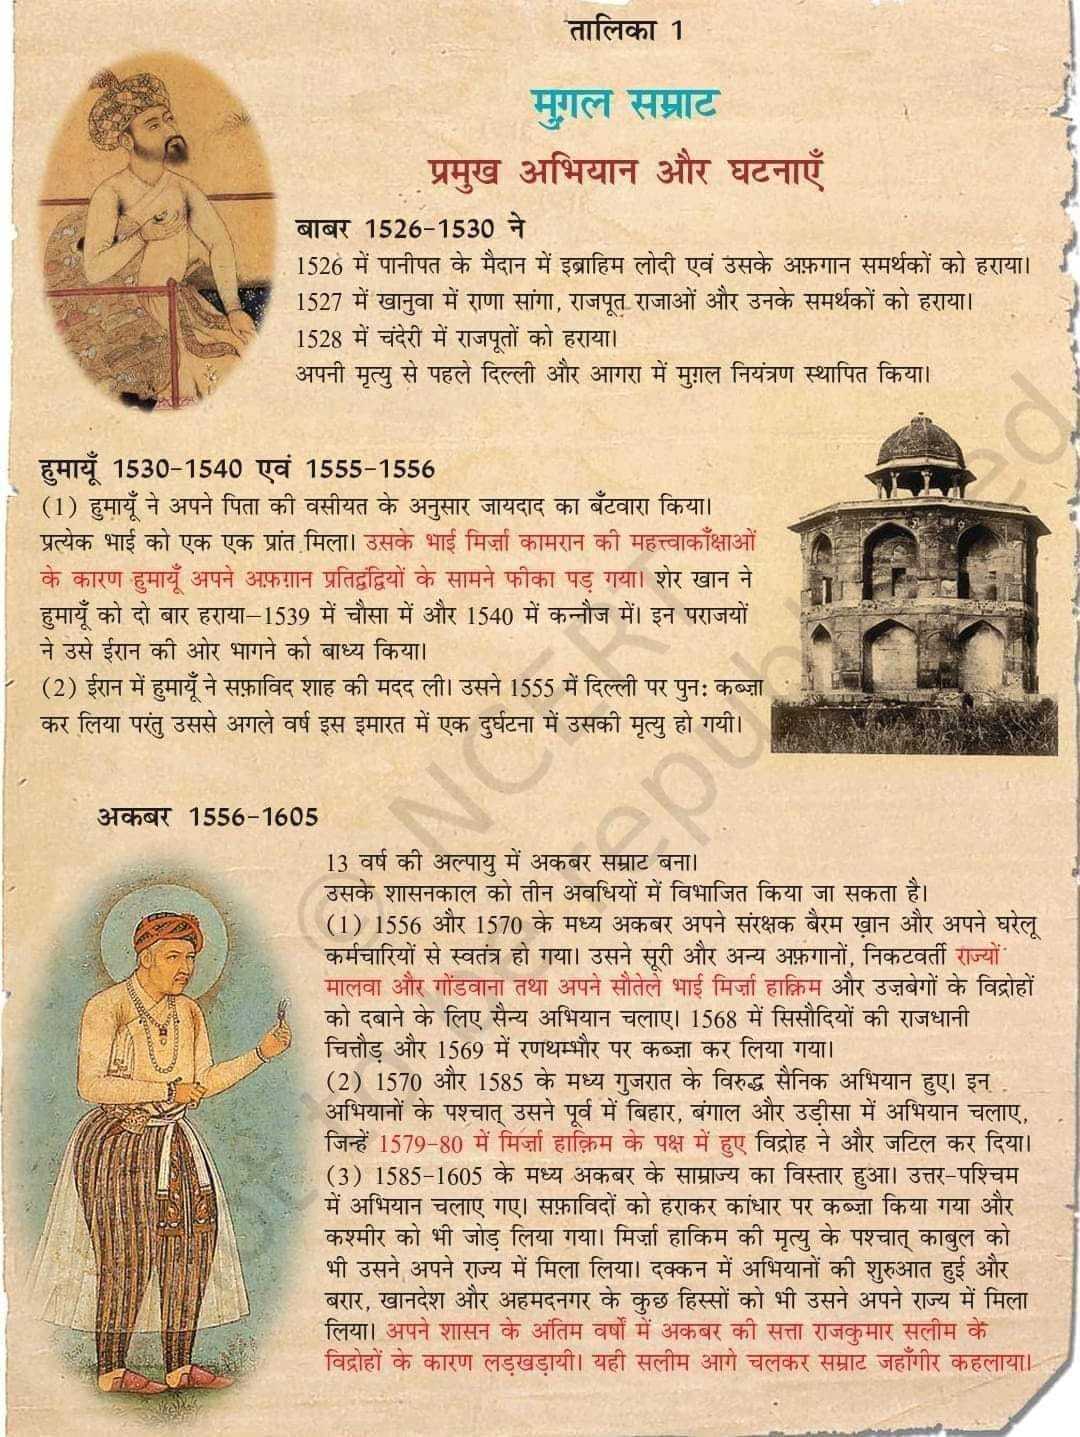 तालिका 1
मुग़ल सम्राट
प्रमुख अभियान और घटनाएँ
बाबर 1526-1530 ने
1526 में पानीपत के मैदान में इब्राहिम लोदी एवं उसके अफ़गान समर्थकों को हराया।
1527 में खानुवा में राणा सांगा, राजपूत राजाओं और उनके समर्थकों को हराया।
1528 में चंदेरी में राजपूतों को हराया।
अपनी मृत्यु से पहले दिल्ली और आगरा में मुग़ल नियंत्रण स्थापित किया।
हुमायूँ 1530-1540 एवं 1555-1556
(1) हुमायूँ ने अपने पिता की वसीयत के अनुसार जायदाद का बँटवारा किया।
प्रत्येक भाई को एक एक प्रांत मिला। उसके भाई मिर्ज़ा कामरान की महत्त्वाकाँक्षाओं
के कारण हुमायूँ अपने अफ़ग़ान प्रतिद्वंद्वियों के सामने फीका पड़ गया। शेर खान ने
हुमायूँ को दो बार हराया–1539 में चौसा में और 1540 में कन्नौज में। इन पराजयों
ने उसे ईरान की ओर भागने को बाध्य किया।
(2) ईरान में हुमायूँ ने सफ़ाविद शाह की मदद ली। उसने 1555 में दिल्ली पर पुनः कब्ज़ा
कर लिया परंतु उससे अगले वर्ष इस इमारत में एक दुर्घटना में उसकी मृत्यु हो गयी।
अकबर 1556-1605
13 वर्ष की अल्पायु में अकबर सम्राट बना।
उसके शासनकाल को तीन अवधियों में विभाजित किया जा सकता है।
(1) 1556 और 1570 के मध्य अकबर अपने संरक्षक बैरम ख़ान और अपने घरेलू
कर्मचारियों से स्वतंत्र हो गया। उसने सूरी और अन्य अफ़गानों, निकटवर्ती राज्यों
मालवा और गोंडवाना तथा अपने सौतेले भाई मिर्ज़ा हाक़िम और उज़बेगों के विद्रोहों
को दबाने के लिए सैन्य अभियान चलाए। 1568 में सिसौदियों की राजधानी
चित्तौड़ और 1569 में रणथम्भौर पर कब्ज़ा कर लिया गया।
(2) 1570 और 1585 के मध्य गुजरात के विरुद्ध सैनिक अभियान हुए। इन
अभियानों के पश्चात् उसने पूर्व में बिहार, बंगाल और उड़ीसा में अभियान चलाए,
जिन्हें 1579-80 में मिर्ज़ा हाक़िम के पक्ष में हुए विद्रोह ने और जटिल कर दिया।
(3) 1585-1605 के मध्य अकबर के साम्राज्य का विस्तार हुआ। उत्तर-पश्चिम
में अभियान चलाए गए। सफ़ाविदों को हराकर कांधार पर कब्ज़ा किया गया और
कश्मीर को भी जोड़ लिया गया। मिर्ज़ा हाकिम की मृत्यु के पश्चात् काबुल को
भी उसने अपने राज्य में मिला लिया। दक्कन में अभियानों की शुरुआत हुई और
बरार, खानदेश और अहमदनगर के कुछ हिस्सों को भी उसने अपने राज्य में मिला
लिया। अपने शासन के अंतिम वर्षों में अकबर की सत्ता राजकुमार सलीम के
विद्रोहों के कारण लड़खड़ायी। यही सलीम आगे चलकर सम्राट जहाँगीर कहलाया।
© NCERT